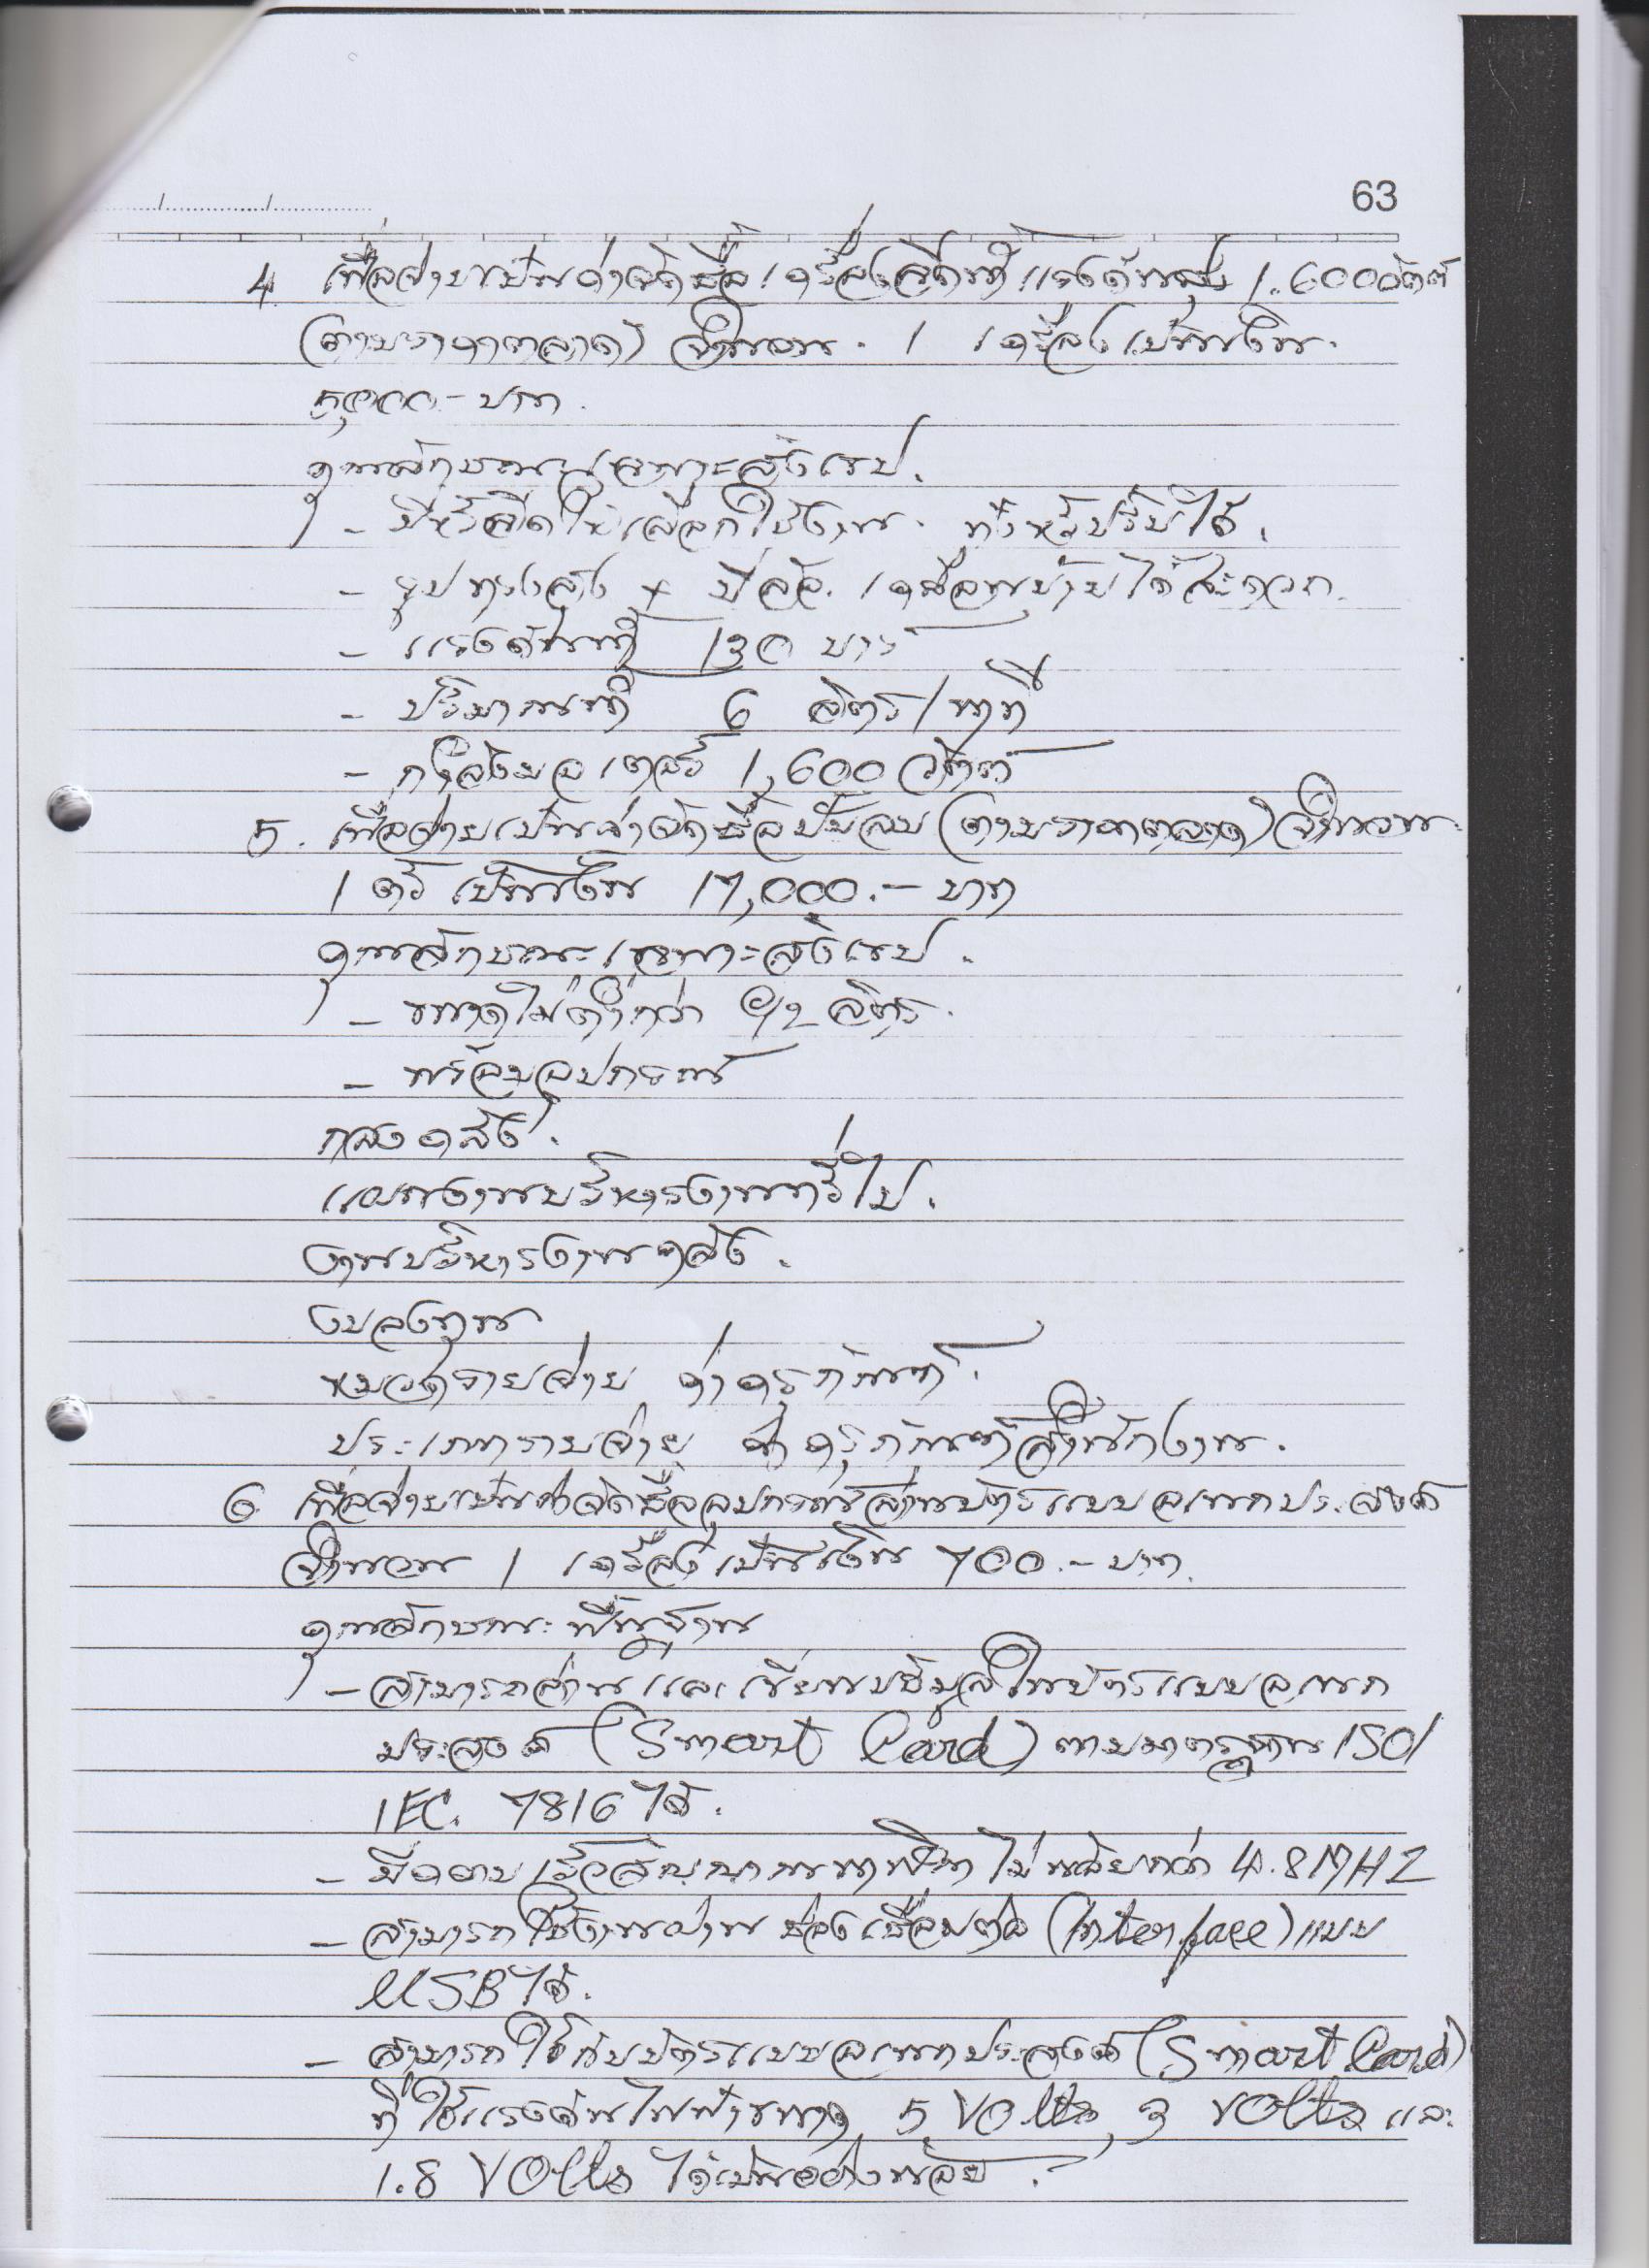 63
4. เพื่อจ่ายเป็นค่าจัดซื้อเครื่องฉีดน้ำแรงดันสูง 1,600 วัตต์
(ตามราคาตลาด) จำนวน 1 เครื่อง เป็นเงิน
บาท
คุณลักษณะเฉพาะสังเขป
- มีหัวฉีดให้เลือกใช้งาน ทั้งหัวปรับได้
- รูปทรงตั้ง + มีล้อ เคลื่อนย้ายได้สะดวก
- แรงดันน้ำ 130 บาร์
- ปริมาณน้ำ 6 ลิตร/นาที
- กำลังมอเตอร์ 1,600 วัตต์
5. เพื่อจ่ายเป็นค่าจัดซื้อปั๊มลม (ตามราคาตลาด) จำนวน
1 ตัว เป็นเงิน 17,000.- บาท
คุณลักษณะเฉพาะสังเขป
- ขนาดไม่ต่ำกว่า ลิตร
- พร้อมอุปกรณ์
กองคลัง
แผนงานบริหารงานทั่วไป
งานบริหารงานคลัง
งบลงทุน
หมวดรายจ่าย ค่าครุภัณฑ์
ประเภทรายจ่าย ค่าครุภัณฑ์สำนักงาน
6 เพื่อจ่ายเป็นค่าจัดซื้ออุปกรณ์อ่านบัตรแบบอเนกประสงค์
จำนวน 1 เครื่อง เป็นเงิน 700.- บาท
คุณลักษณะพื้นฐาน
- สามารถอ่านและเขียนข้อมูลในบัตรแบบอเนก
ประสงค์ (Smart Card) ตามมาตรฐาน ISO/
IEC. 7816 ได้
- มีความเร็วสัญญาณนาฬิกา ไม่น้อยกว่า 4.8 MHz
- สามารถใช้งานผ่านช่องเชื่อมต่อ (Interface) แบบ
USB ได้
- สามารถใช้กับบัตรแบบอเนกประสงค์ (Smart Card)
ที่ใช้แรงดันไฟฟ้าขนาด 5 Volts, 3 Volts และ
1.8 Volts ได้เป็นอย่างน้อย